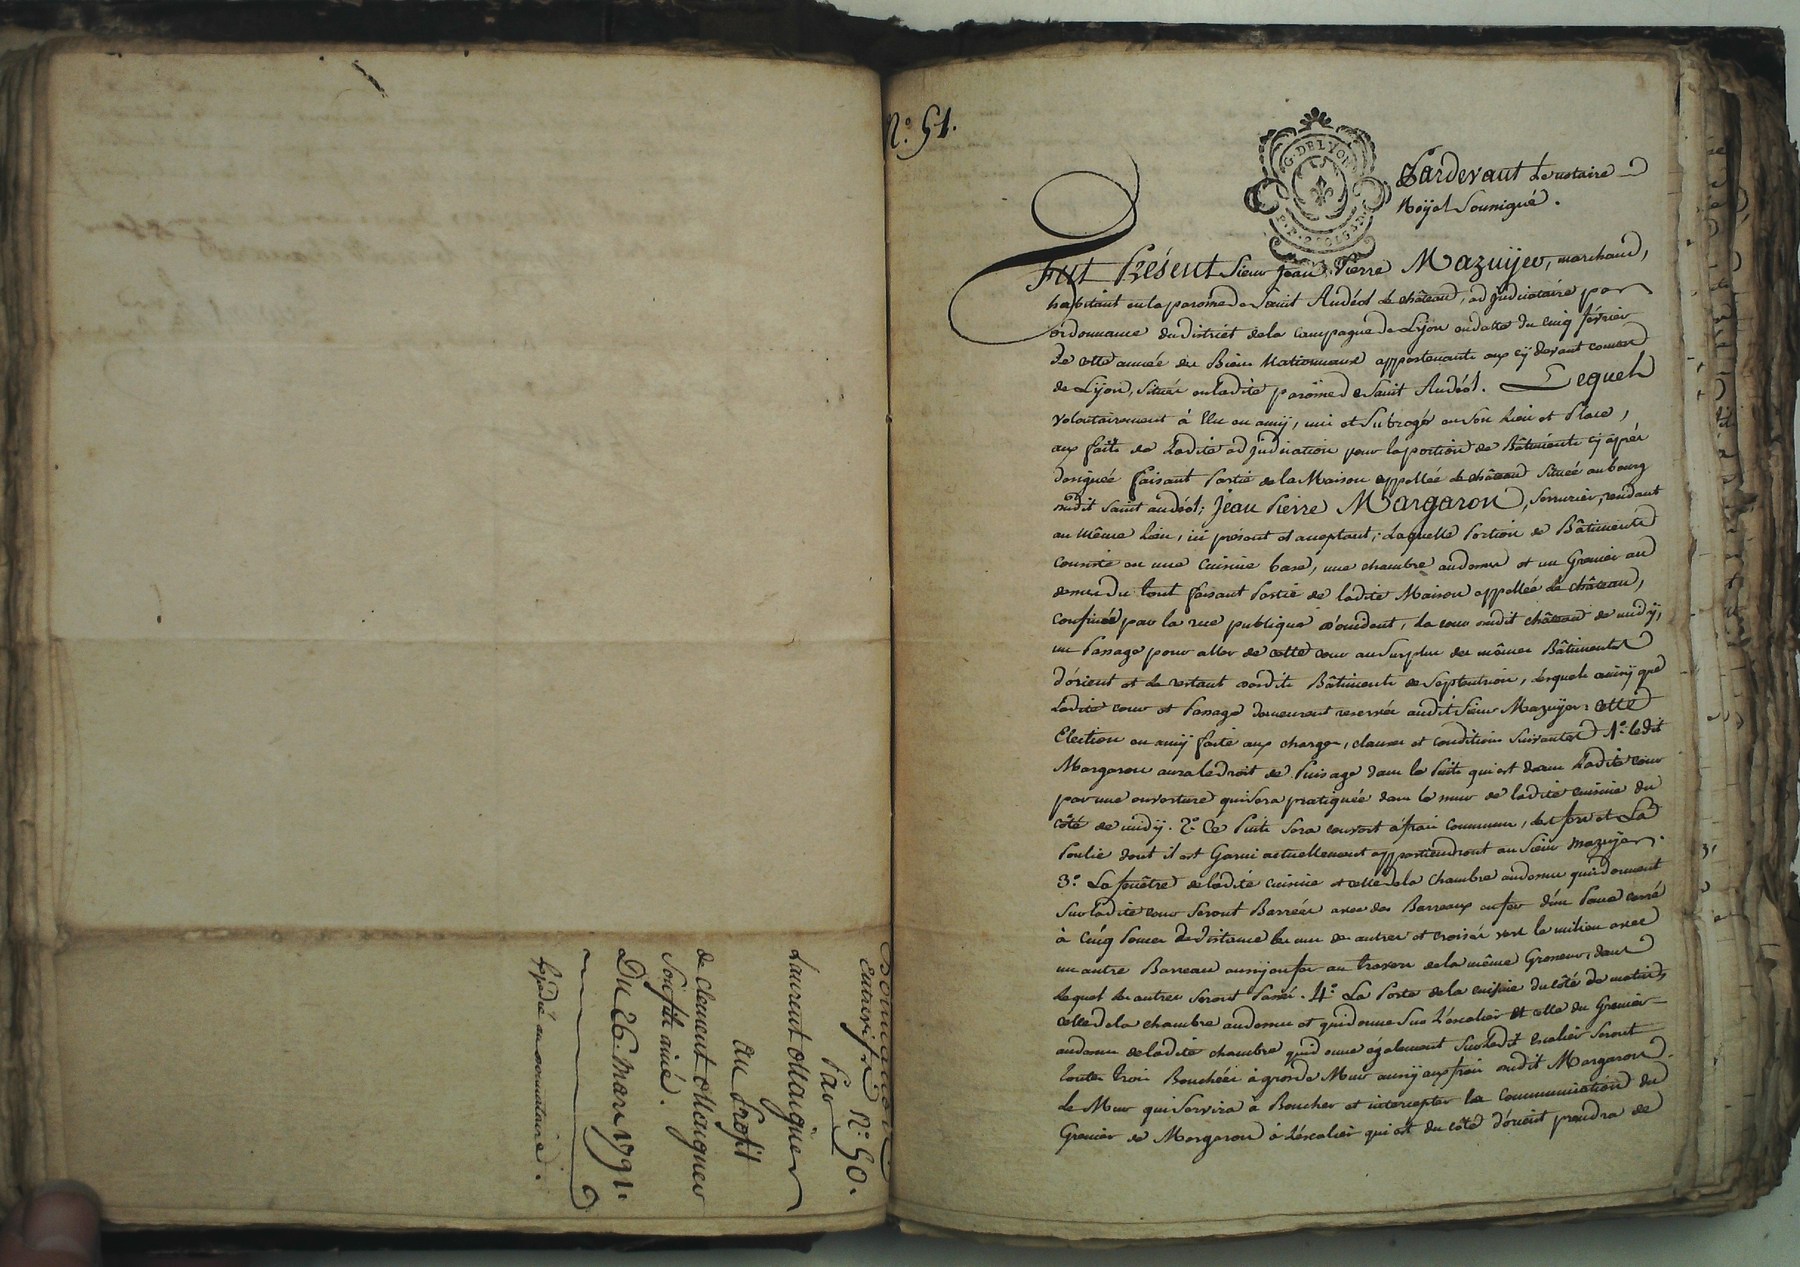 N.° 50.
entre vifs
Par
Laurent Maiguer
au Profit
de Clement Maiguer
Son fils ainé.
Du 26. Mars 1791.
N.° 51.
G. DE LYON
Pardevant Le notaire
Royal Soussigné.
Fut Présent Sieur Jean Pierre Mazuyer, marchand,
habitant en la paroisse de Saint Andéol le château, adjudicataire par
ordonnance du District de la Campagne de Lyon en datte du cinq février
de cette année des Biens Nationnaux appartenants aux cy devant comtes
de Lyon, Situés en ladite paroisse de Saint Andéol. Lequel
volontairement à Elu en amy, mis et Subrogé en Son Lieu et Place,
aux faits de Ladite adjudication pour la portion de Bâtiments cy après
designée faisant Partie de la Maison appellée le château Située au bourg
dudit Saint andéol; Jean Pierre Margaron, Serrurier, residant
au même Lieu, ici présent et acceptant; Laquelle Portion de Bâtiments
consiste en une Cuisine basse, une chambre audessus et un Grenier au
dessus du tout faisant Partie de ladite Maison appellée le château,
confinée par la rue publique d'occident, la cour dudit château de midÿ,
un Passage pour aller de cette cour au Surplus des mêmes Bâtiments
d'orient et le restant desdits Bâtiments de Septentrion, lesquels ainsy que
Ladite cour et Passage demeurent reservés audit Sieur Mazuyer: cette
Election en amy faite aux charges, clauses et conditions Suivantes 1.° ledit
Margaron aura le droit de Puisage dans le Puits qui est dans Ladite cour
par une ouverture qui Sera pratiquée dans le mur de ladite cuisine du
côté de midÿ. 2.° Ce Puits Sera couvert à frais communs, les fers et La
Poulie dont il est Garni actuellement appartiendront au Sieur Mazuyer.
3.° La fenêtre de ladite cuisine et celle de la Chambre audessus qui donnent
Sur Ladite cour Seront Barrées avec des Barreaux en fer d'un Pouce carré
à Cinq Pouces de distance les uns des autres et croisés vers le milieu avec
un autre Barreau aussy en fer au travers de la même Grosseur, dans
lequel les autres Seront Passés. 4.° La Porte de la cuisine du côté de matin,
celle de la chambre audessus et qui donne Sur L'escalier et celle du Grenier
audessus de ladite chambre qui donne également Sur Ledit escalier Seront
toutes trois Bouchées à gros de Mur aussÿ aux frais dudit Margaron.
Le Mur qui Servira à Boucher et intercepter la Communication du
Grenier de Margaron à L'escalier qui est du côté d'orient prendra de